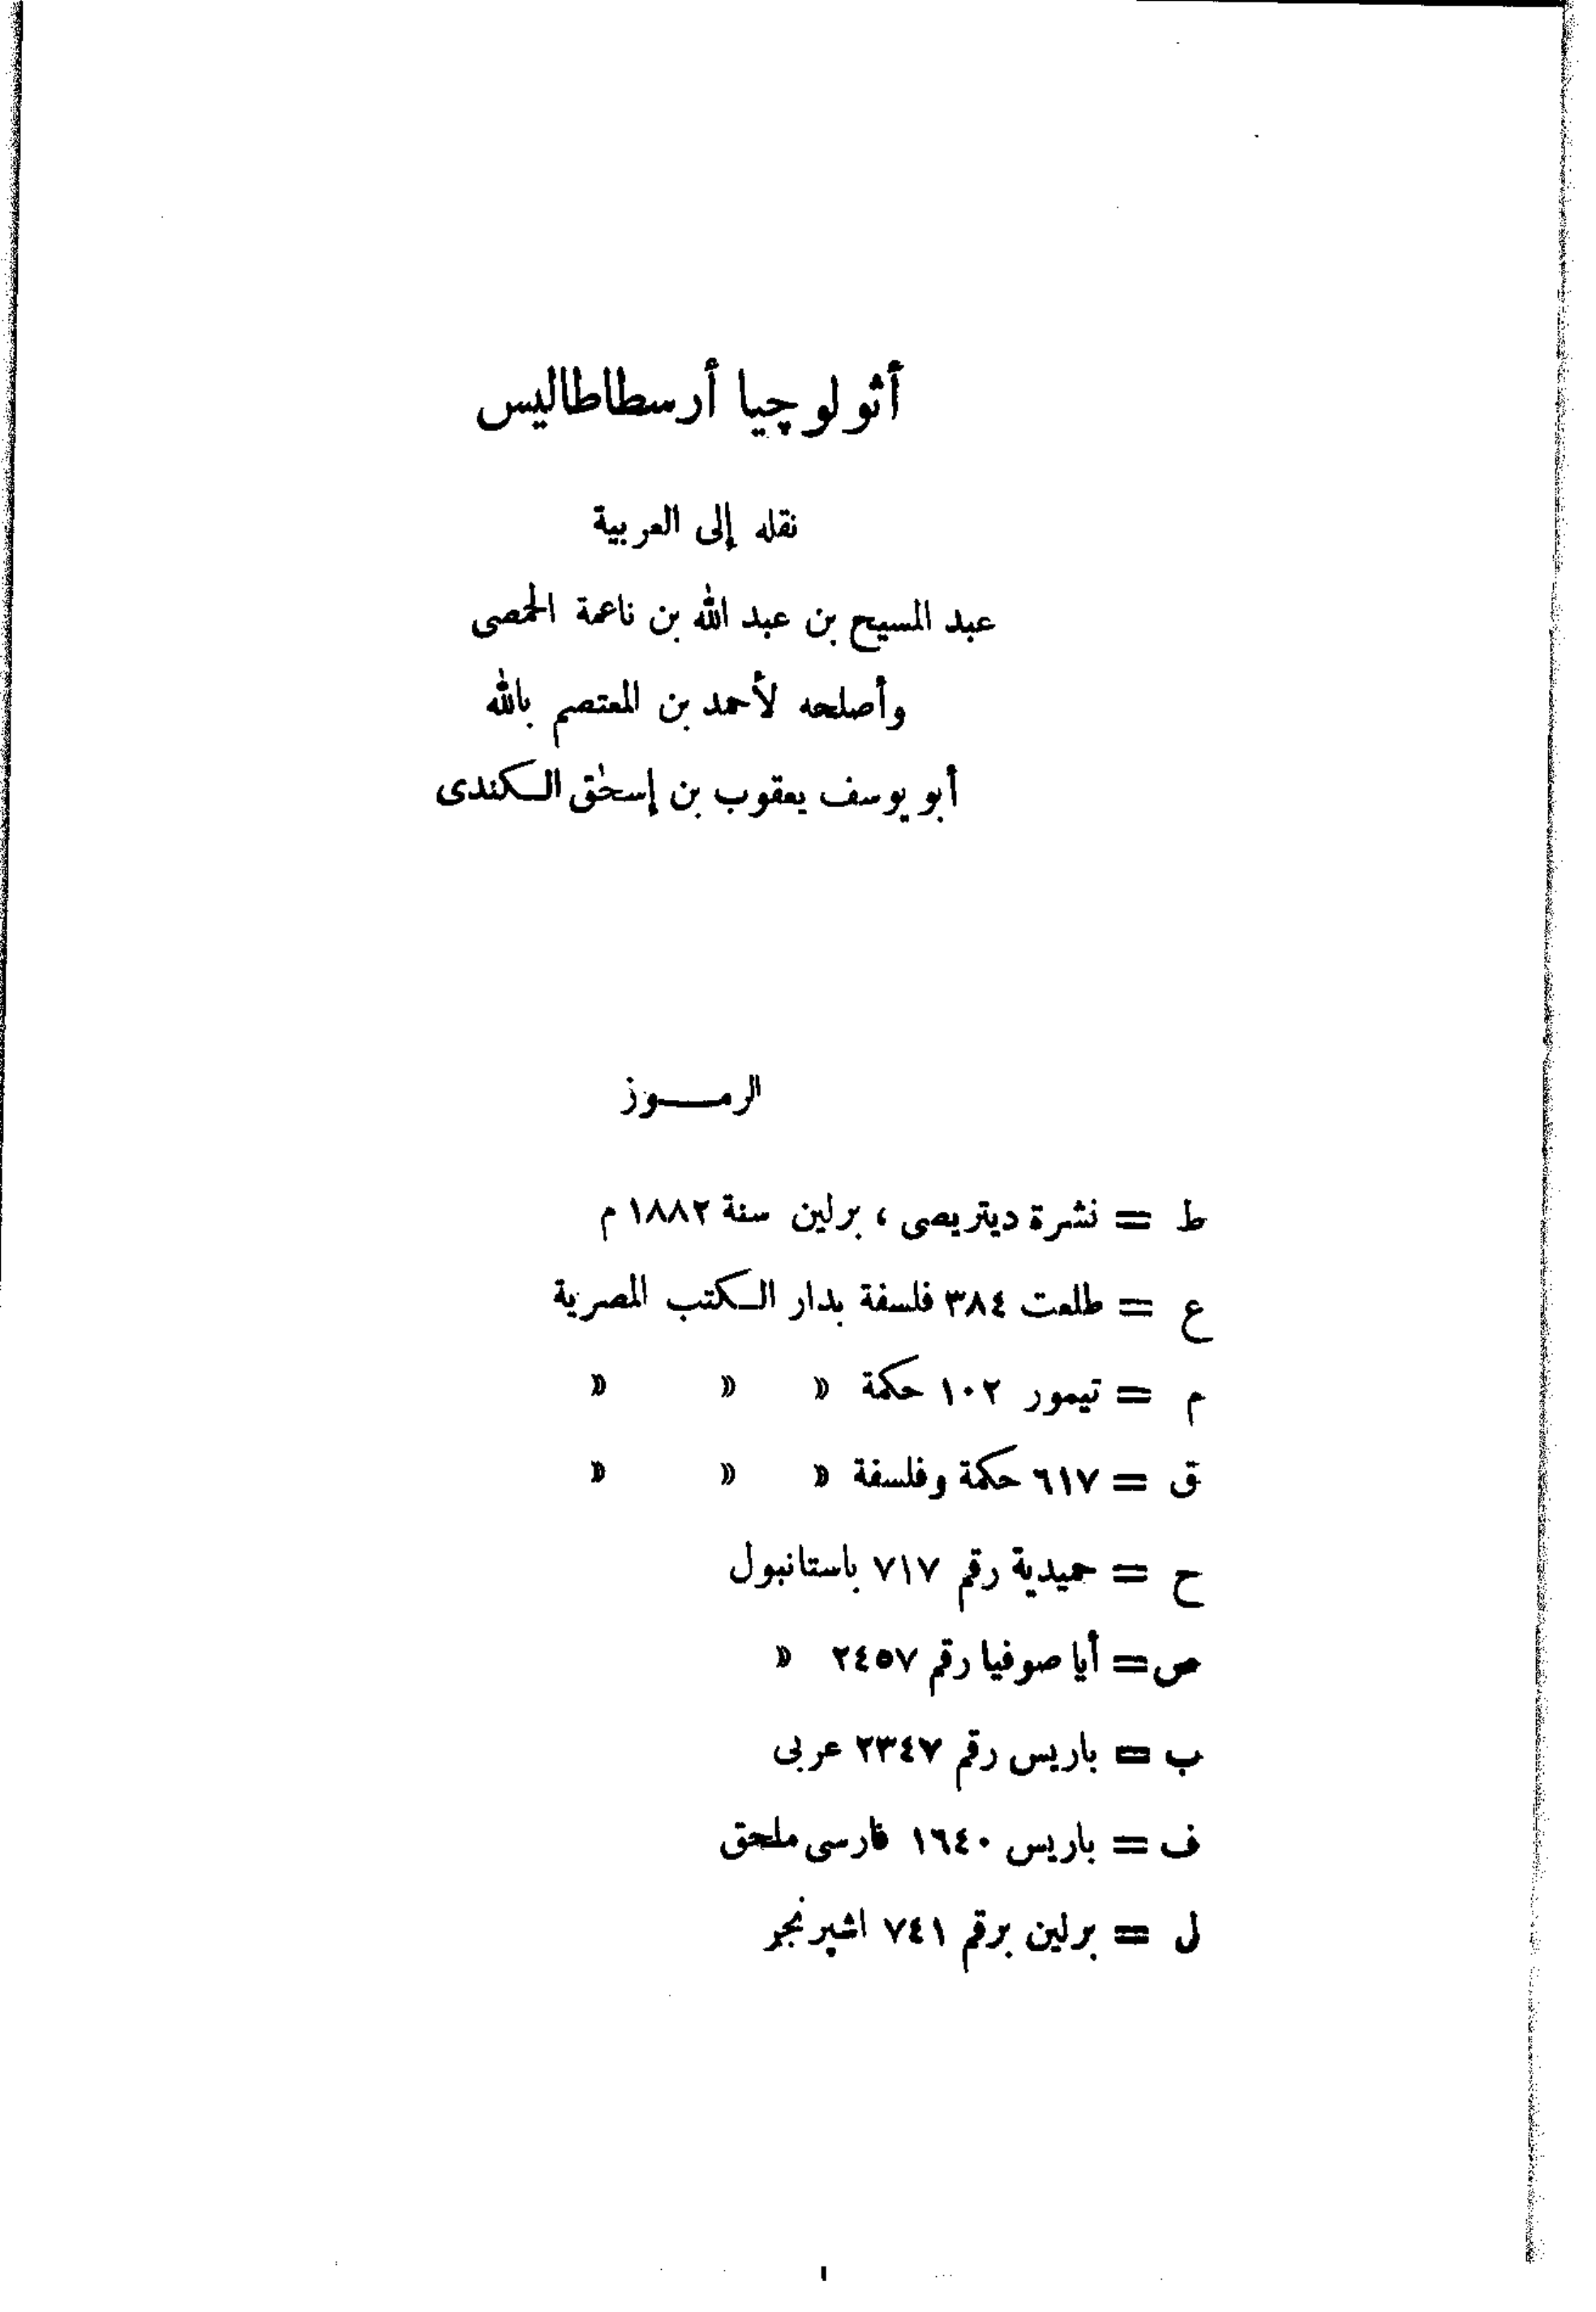 أثولوچيا أرسطاطاليس
نقله إلى العربية
عبد المسيح بن عبد الله بن ناعمة الحمصى
وأصلحه لأحمد بن المعتصم بالله
أبو يوسف يعقوب بن إسحٰق الكندى
الرمـــوز
ط = نشرة ديتريصى ، برلين سنة ١٨٨٢ م
ع = طلعت ٣٨٤ فلسفة بدار الكتب المصرية
م = تيمور ١٠٢ حكمة » » »
ق = ٦١٧ حكمة وفلسفة » » »
ح = حميدية رقم ٧١٧ باستانبول
ص = أيا صوفيا رقم ٢٤٥٧ »
ب = باريس رقم ٢٣٤٧ عربى
ف = باريس ١٦٤٠ فارسى ملحق
ل = برلين برقم ٧٤١ اشپرنجر
١